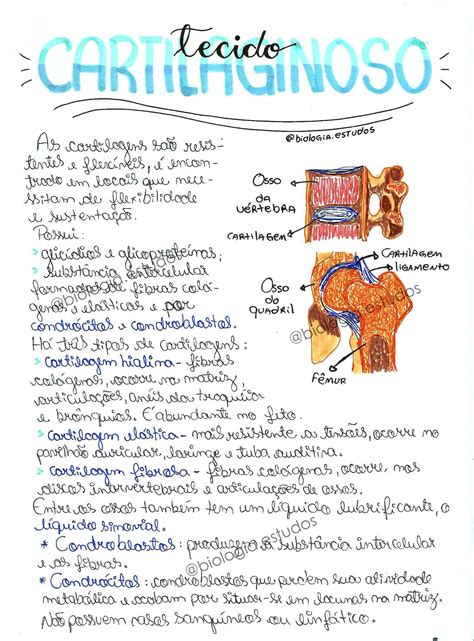 tecido
CARTILAGINOSO
@biologia.estudos
As cartilagens são resis-
tentes e flexíveis, é encon-
trado em locais que neces-
sitam de flexibilidade
e sustentação.
Possui:
> glicídios e glicoproteínas;
> substância intercelular
formada por fibras colá-
genas e elásticas e por
condrócitos e condroblastos.
Há três tipos de cartilagens:
> cartilagem hialina - fibras
colágenas, ocorre na matriz,
articulações, anéis da traqueia
e brônquios. É abundante no feto.
> cartilagem elástica - mais resistente a tensões, ocorre no
pavilhão auricular, laringe e tuba auditiva.
> cartilagem fibrosa - fibras colágenas, ocorre nos
discos intervertebrais e articulações de ossos.
Entre os ossos também tem um líquido lubrificante, o
líquido sinovial.
* Condroblastos: produzem a substância intercelular
e as fibras.
* Condrócitos: condroblastos que perdem sua atividade
metabólica e acabam por situar-se em lacunas na matriz.
Não possuem vasos sanguíneos ou linfático.
Osso
da
vértebra
CARTILAGEM
CARTILAGEM
LIGAMENTO
Osso
do
quadril
Fêmur
@biologia.estudos
@biologia.estudos
@biologia.estudos